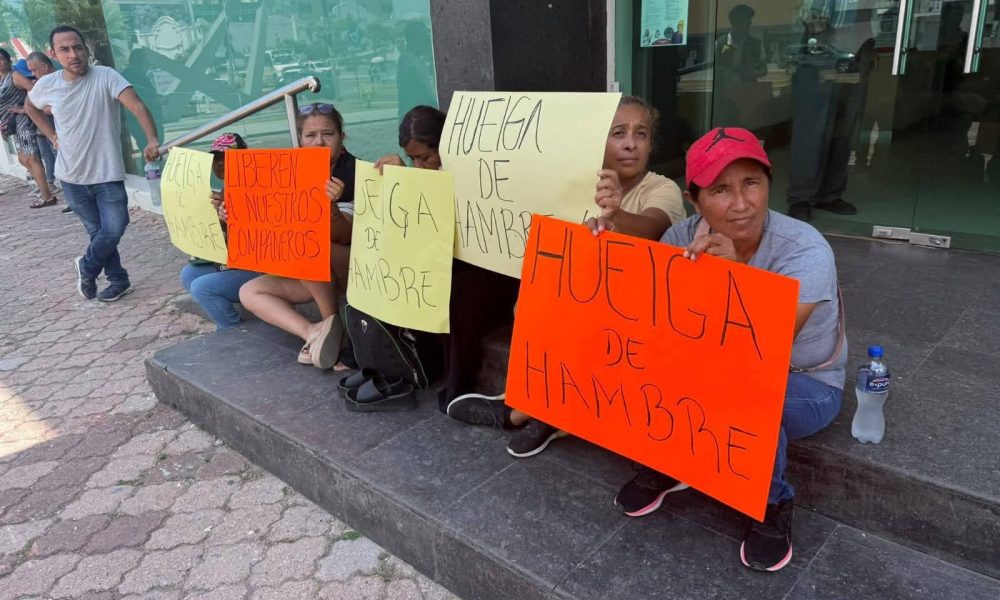 HUEIGA
DE
HAMBRE
LIBEREN
A NUESTROS
COMPAÑEROS
UEIGA
DE
HAMBRE
HUEIGA
DE
HAMBRE
HUEIGA
DE
HAMBRE
e-pura